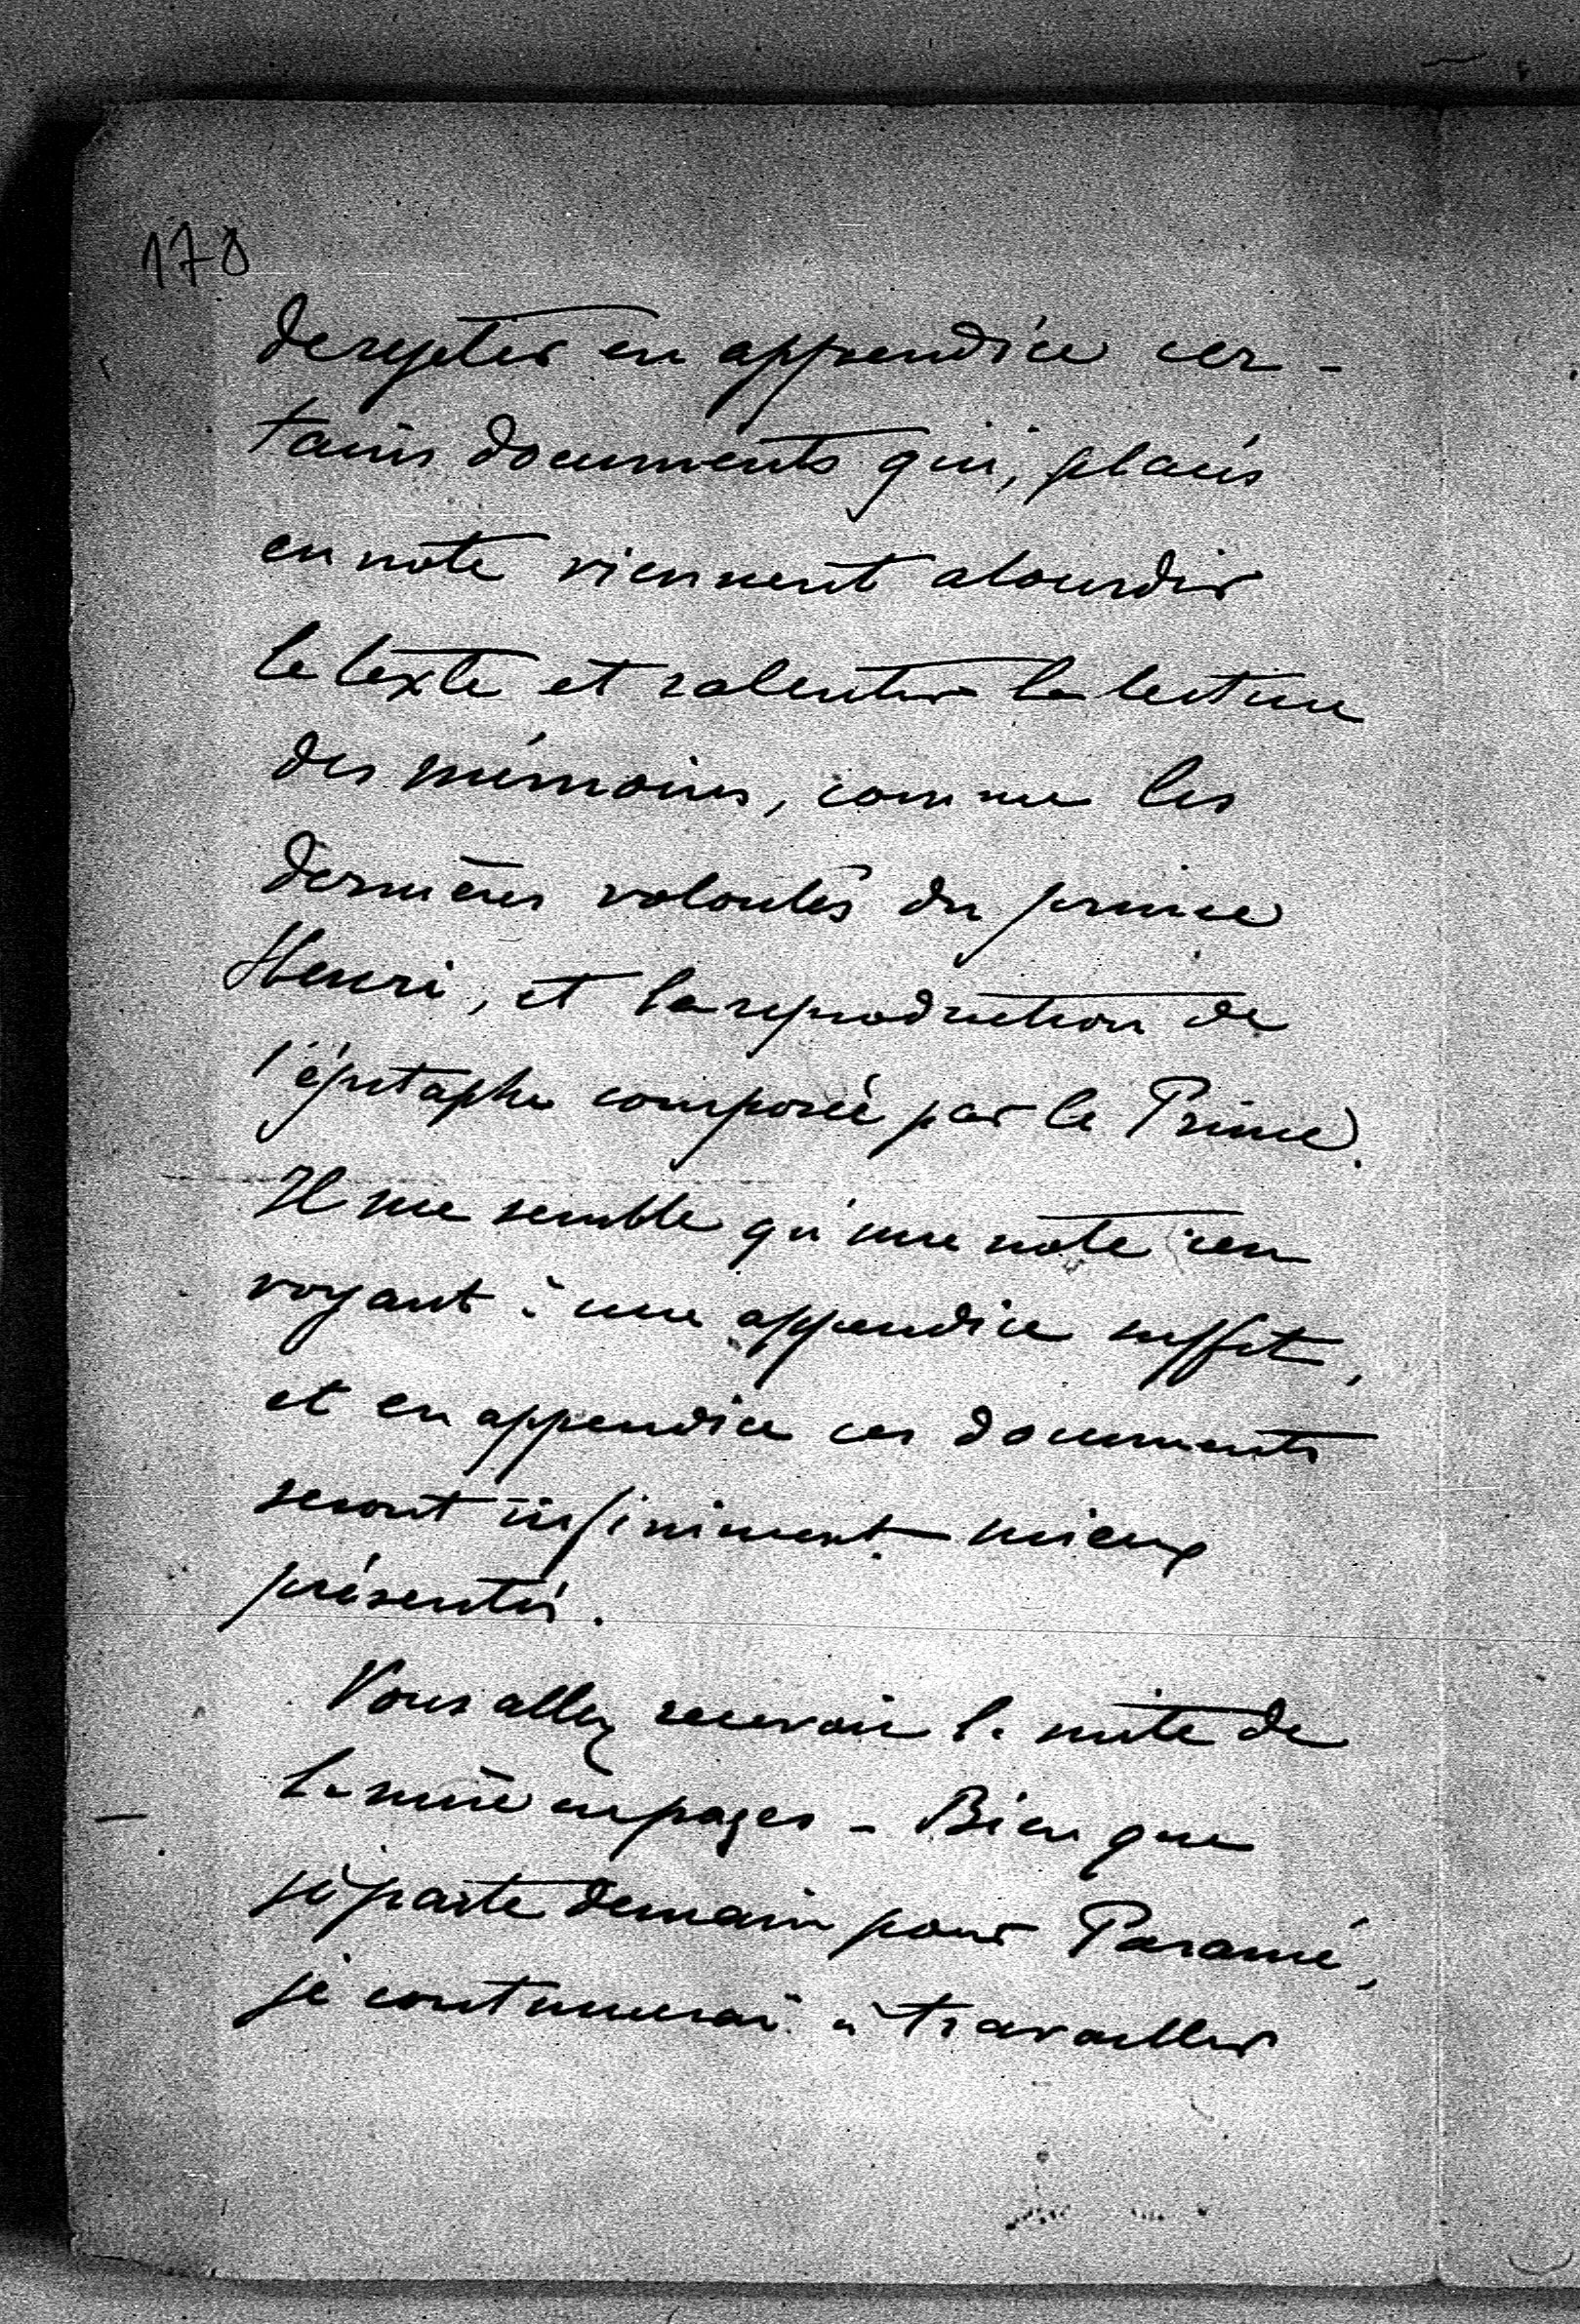 178
de rejeter en appendice cer-
tains documents qui, placés
en note viennent alourdir
le texte et ralentir la lecture
des mémoires, comme les
dernières volontés du prince
Henri, et la reproduction de
l'épitaphe composée par le Prince.
Il me semble qu'une note ren
voyant à une appendice suffit,
et en appendice ces documents
seront infiniment mieux
présentés.
Vous allez recevoir la suite de
la mise en pages - Bien que
je parte demain pour Paramé,
je continuerai à travailler